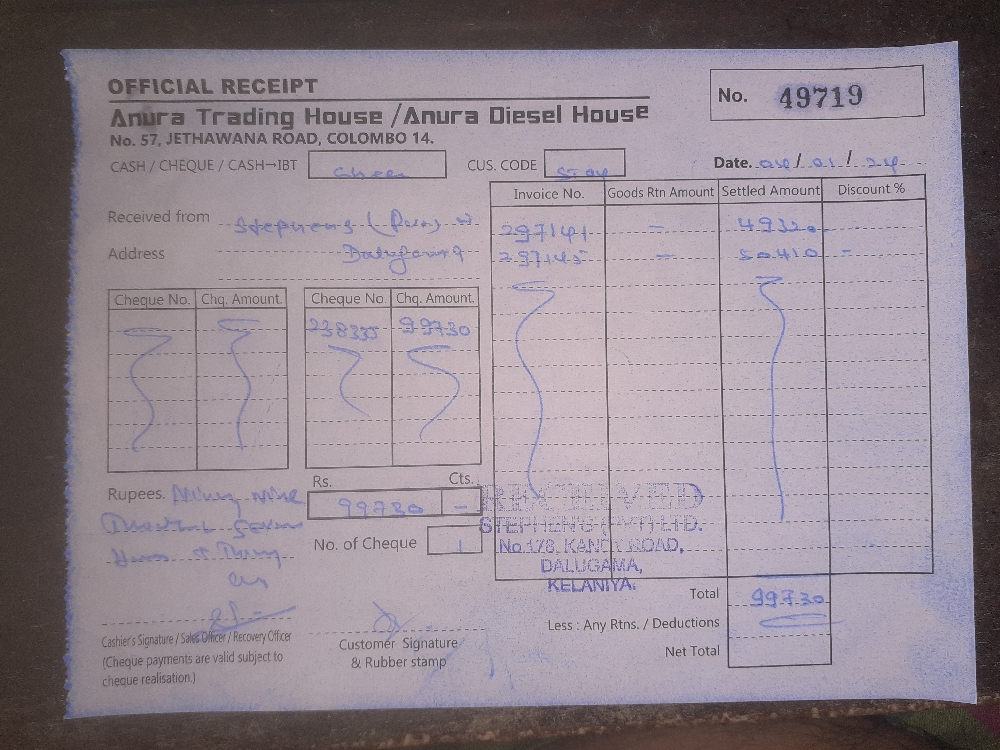 OFFICIAL RECEIPT
No. 49719
Anura Trading House /Anura Diesel House
No. 57, JETHAWANA ROAD, COLOMBO 14.
CASH / CHEQUE / CASH→IBT
CUS. CODE
Date. 01 / 24
Invoice No. Goods Rtn Amount Settled Amount Discount %
Received from Stephens (
297141 = 49320
Address
297145 — 50410 -
Cheque No. Chq. Amount. Cheque No. Chq. Amount.
238335 99730
Rs. Cts.
Rupees. Ninety Nine
99730 -
RECEIVED
STEPHENS (PVT) LTD.
No. of Cheque 1
No.178, KANDY ROAD,
DALUGAMA,
KELANIYA.
Total 99730
Less : Any Rtns. / Deductions
Net Total
Cashier's Signature / Sales Officer / Recovery Officer
(Cheque payments are valid subject to
cheque realisation.)
Customer Signature
& Rubber stamp